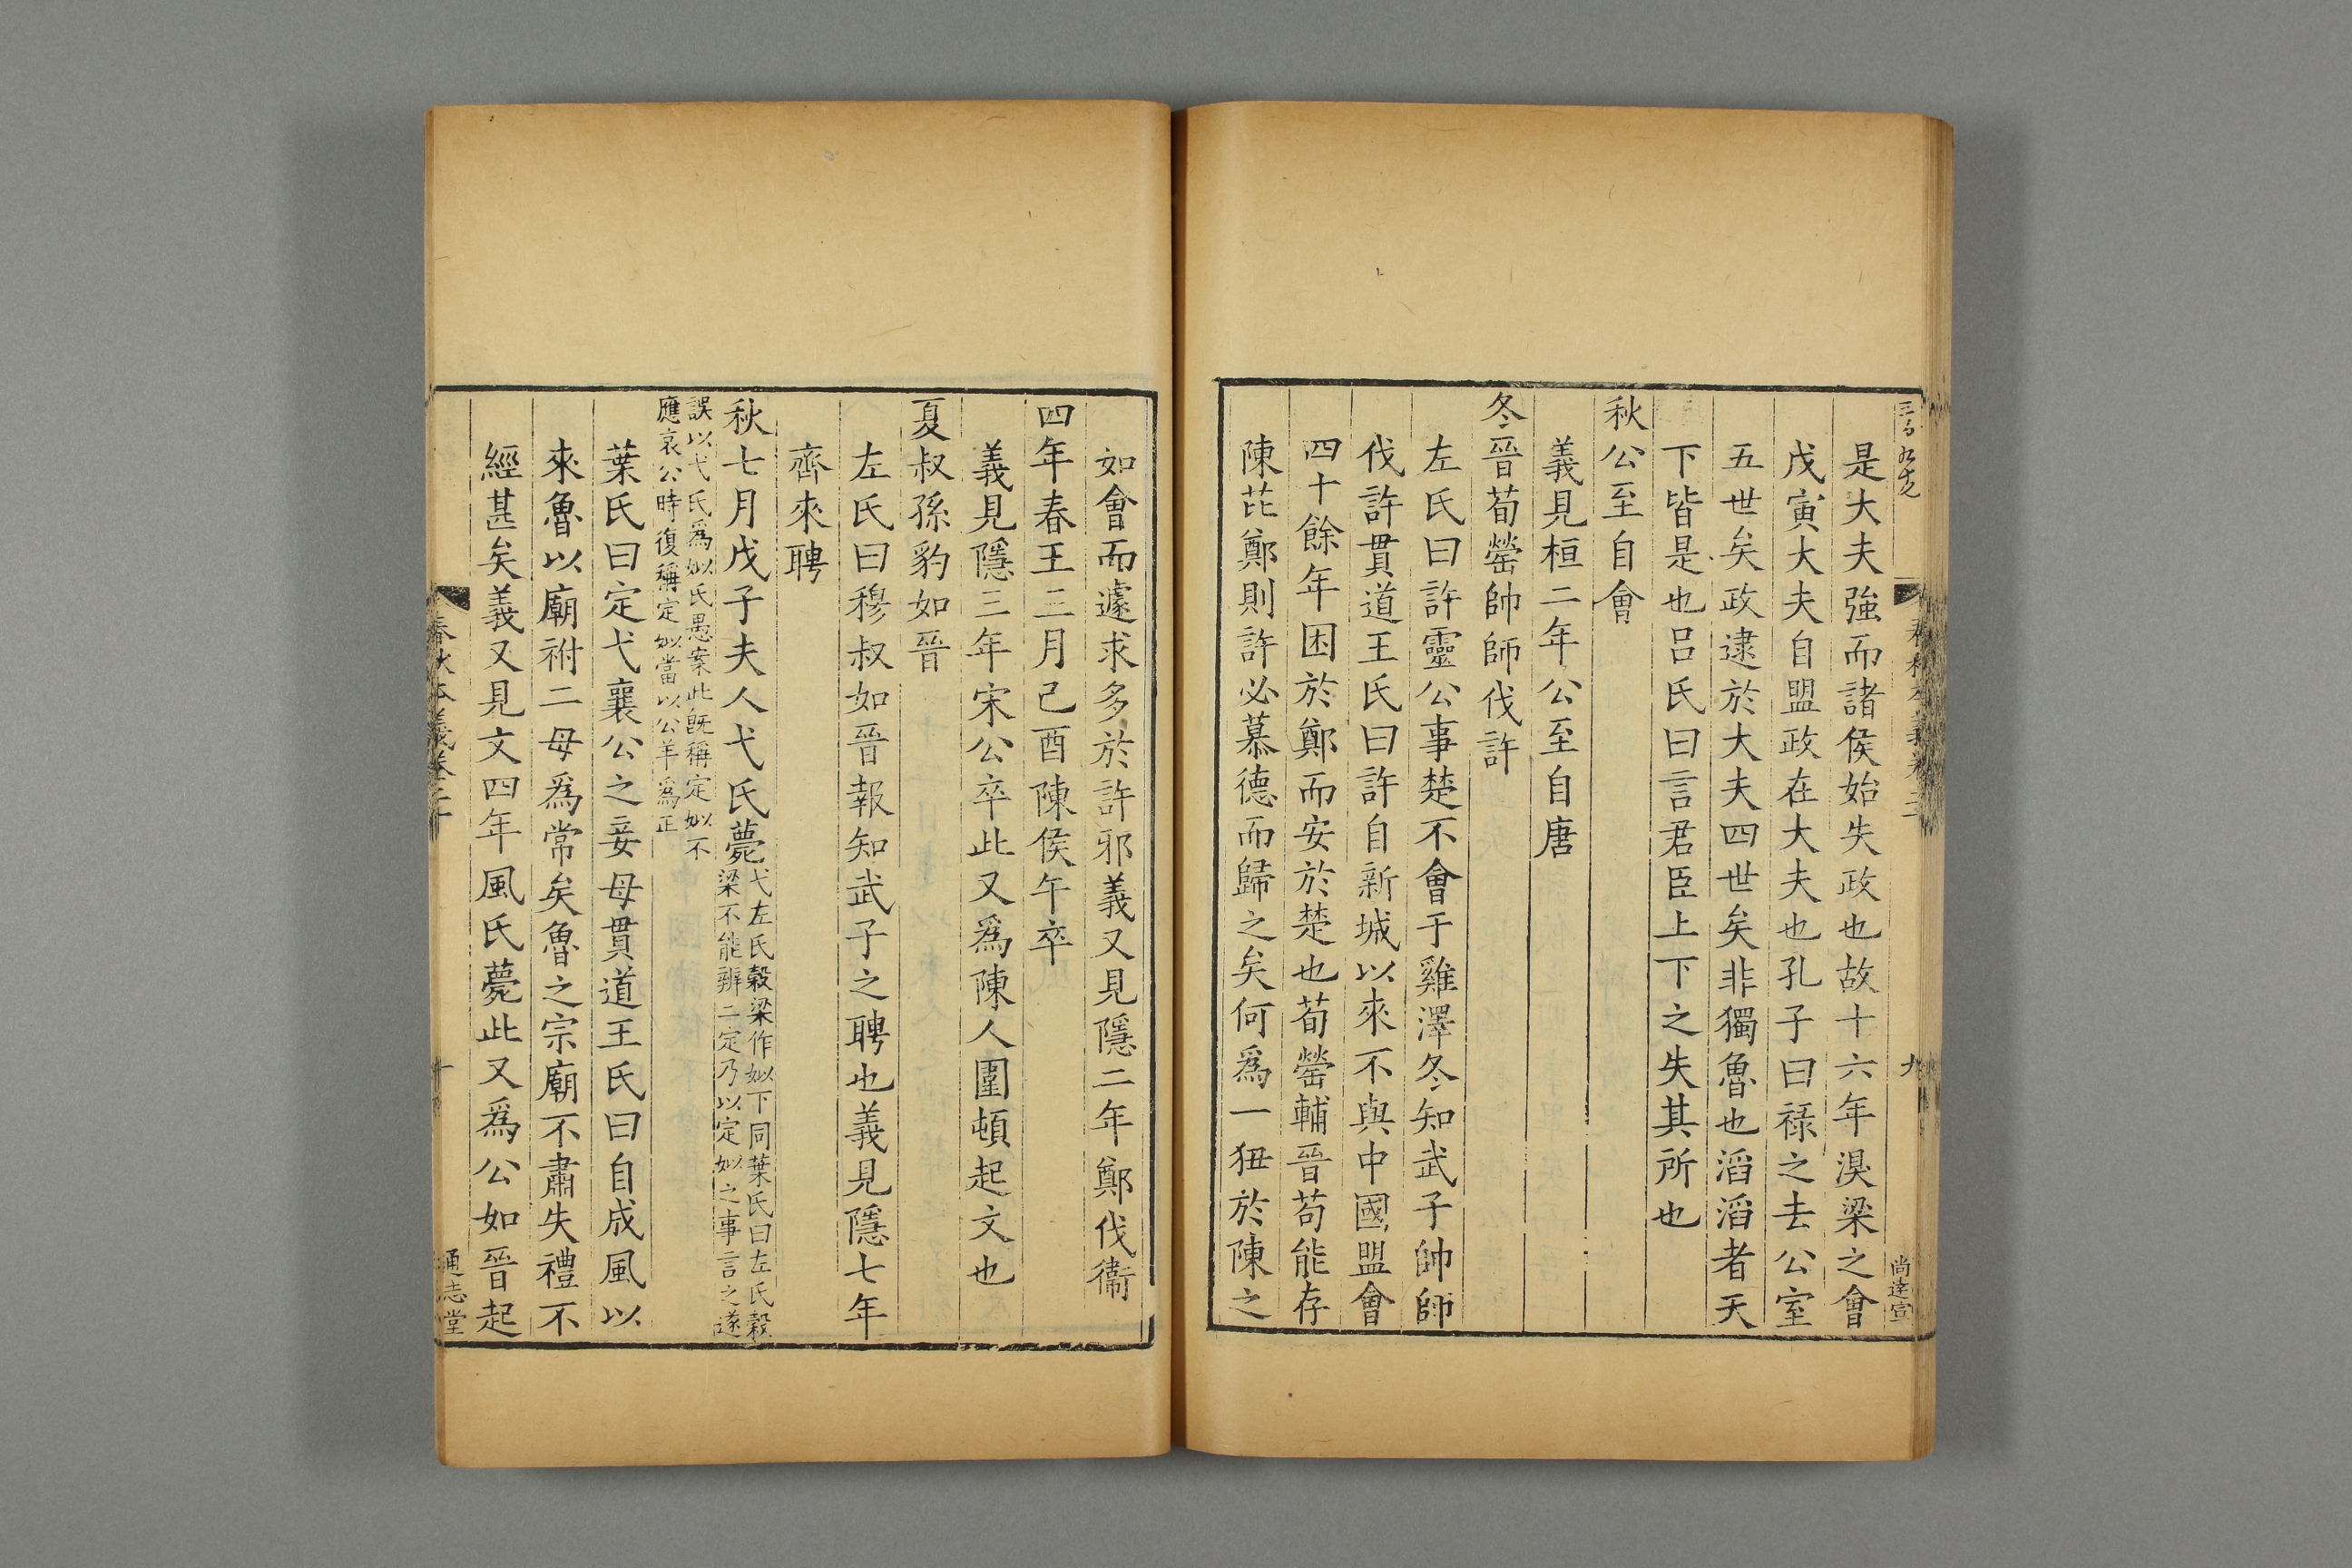 是大夫強而諸侯始失政也故十六年湨梁之會
戊寅大夫自盟政在大夫也孔子曰祿之去公室
五世矣政逮於大夫四世矣非獨魯也滔滔者天
下皆是也吕氏曰言君臣上下之失其所也
秋公至自會
義見桓二年公至自唐
冬晉荀罃帥師伐許
左氏曰許靈公事楚不會于雞澤冬知武子帥師
伐許貫道王氏曰許自新城以來不與中國盟會
四十餘年困於鄭而安於楚也荀罃輔晉苟能存
陳芘鄭則許必慕德而歸之矣何爲一狃於陳之
九
尚逵宣
如會而遽求多於許邪義又見隱二年鄭伐衞
四年春王三月己酉陳侯午卒
義見隱三年宋公卒此又爲陳人圍頓起文也
夏叔孫豹如晉
左氏曰穆叔如晉報知武子之聘也義見隱七年
齊來聘
秋七月戊子夫人弋氏薨
弋左氏穀梁作姒下同葉氏曰左氏穀
梁不能辨二定乃以定姒之事言之遂
誤以弋氏爲姒氏愚案此旣稱定姒不
應哀公時復稱定姒當以公羊爲正
葉氏曰定弋襄公之妾母貫道王氏曰自成風以
來魯以廟祔二母爲常矣魯之宗廟不肅失禮不
經甚矣義又見文四年風氏薨此又爲公如晉起
春秋本義卷二十
十
通志堂